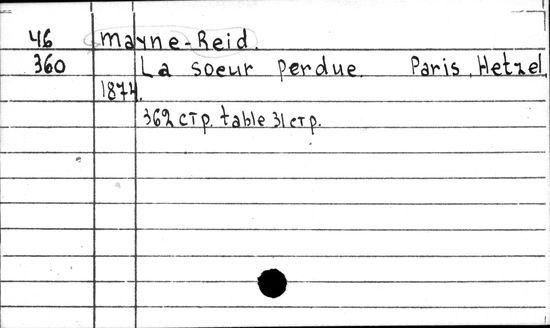 46 Mayne-Reid.
360 La soeur perdue. Paris, Hetzel,
1874.
362 стр. table 31 стр.